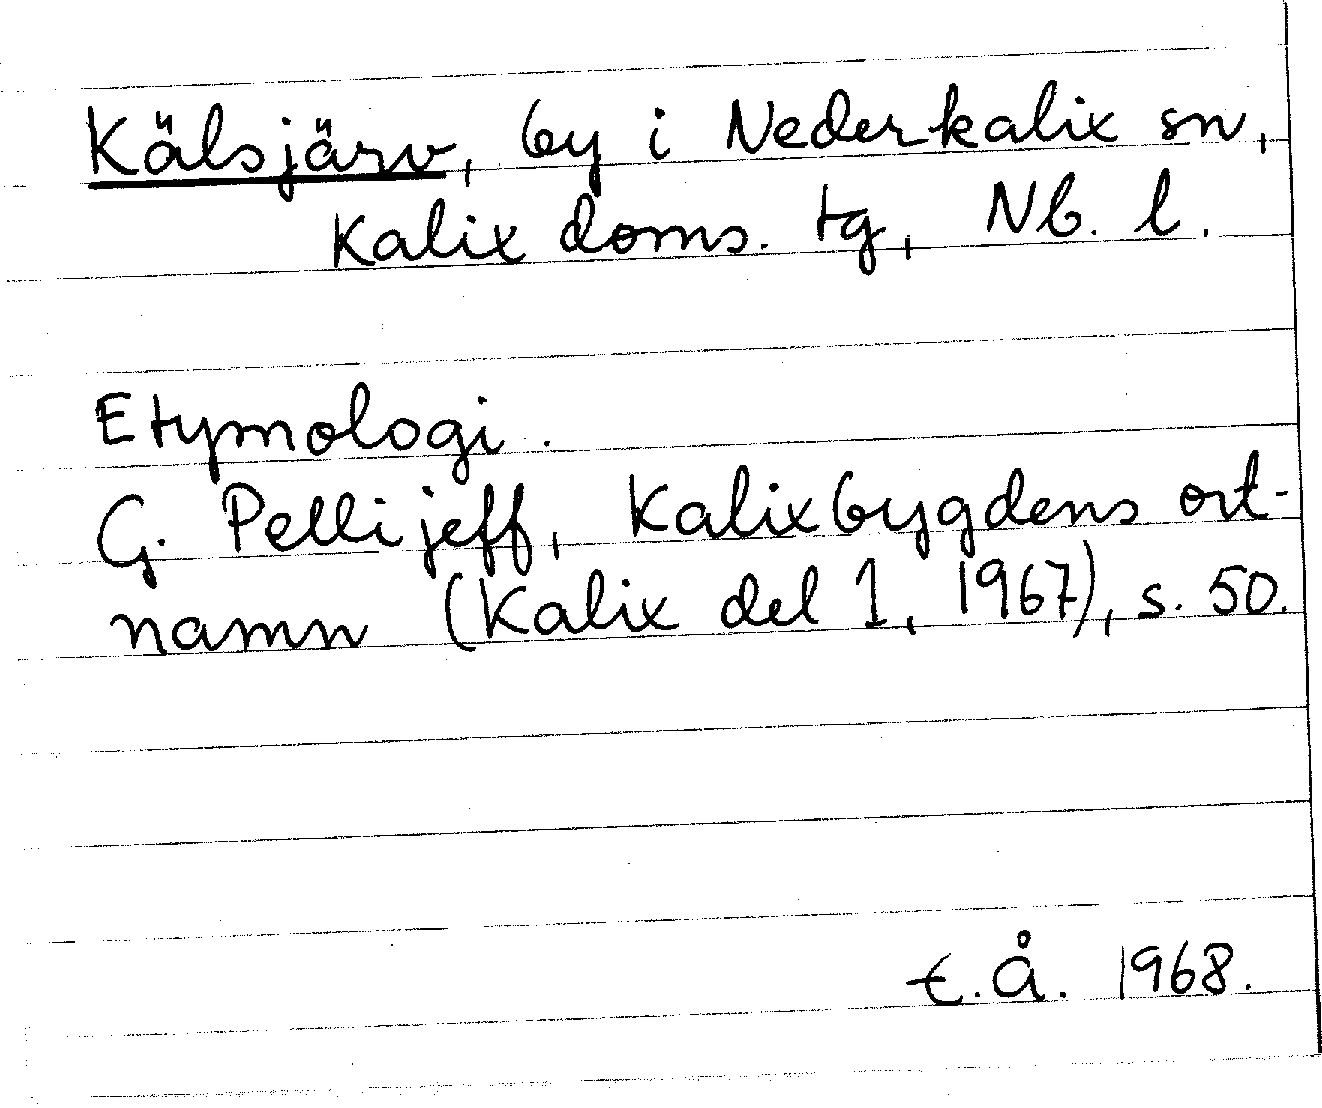 Kälsjärv, by i Nederkalix sn,
Kalix doms. tg, Nb. l.
Etymologi.
G. Pellijeff, Kalixbygdens ort-
namn (Kalix del 1, 1967), s. 50.
t.Å. 1968.